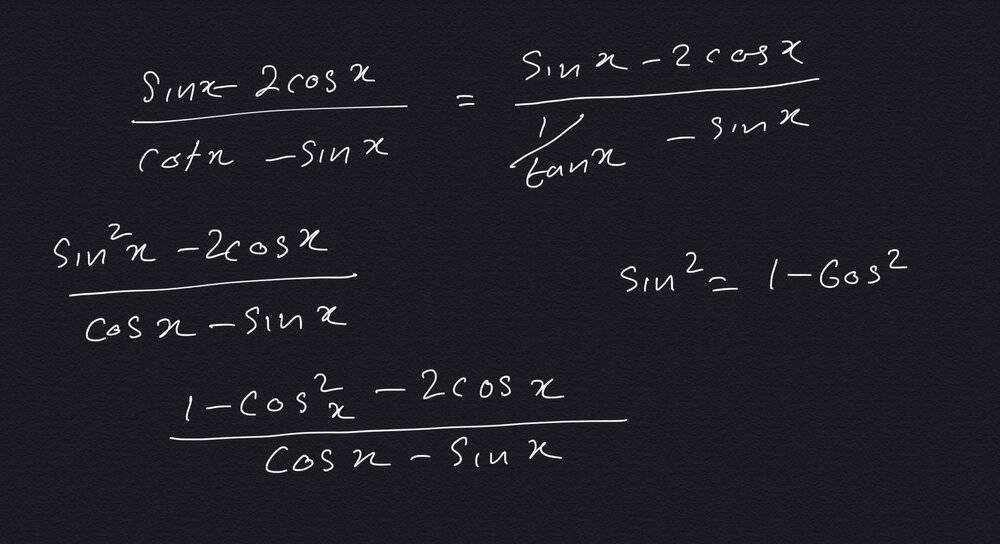 (sin x - 2cos x)/(cot x - sin x) = (sin x - 2cos x)/(1/tan x - sin x)
(sin²x - 2cos x)/(cos x - sin x)
sin² = 1 - Cos²
(1 - cos²x - 2cos x)/(cos x - sin x)